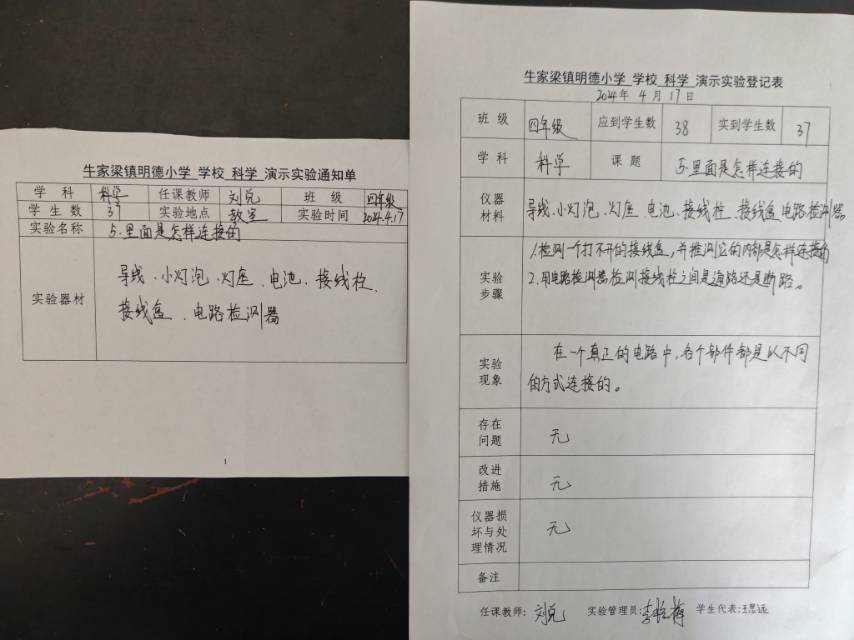 牛家梁镇明德小学 学校 科学 演示实验通知单
学科 科学 任课教师 刘 班级 四年级
学生数 37 实验地点 教室 实验时间 2024.4.17
实验名称 5.里面是怎样连接的
实验器材 导线、小灯泡、灯座、电池、接线柱、
接线盒、电路检测器
1
牛家梁镇明德小学 学校 科学 演示实验登记表
2024年 4月 17日
班级 四年级 应到学生数 38 实到学生数 37
学科 科学 课题 5.里面是怎样连接的
仪器材料 导线、小灯泡、灯座、电池、接线柱、接线盒、电路检测器
实验步骤 1.检测一个打不开的接线盒,并推测它的内部是怎样连接的
2.用电路检测器检测接线柱之间是通路还是断路。
实验现象 在一个真正的电路中,各个部件都是以不同
的方式连接的。
存在问题 无
改进措施 无
仪器损坏与处理情况 无
备注
任课教师: 刘 实验管理员: 李 梅 学生代表: 王思